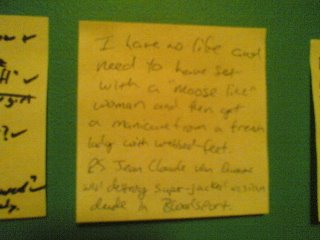 I have no life and
need to have sex
with a "moose like"
woman and then get
a manicure from a french
lady with webbed feet.
PS Jean Claude Van Damme
will destroy super-jacked asian
dude in Bloodsport.